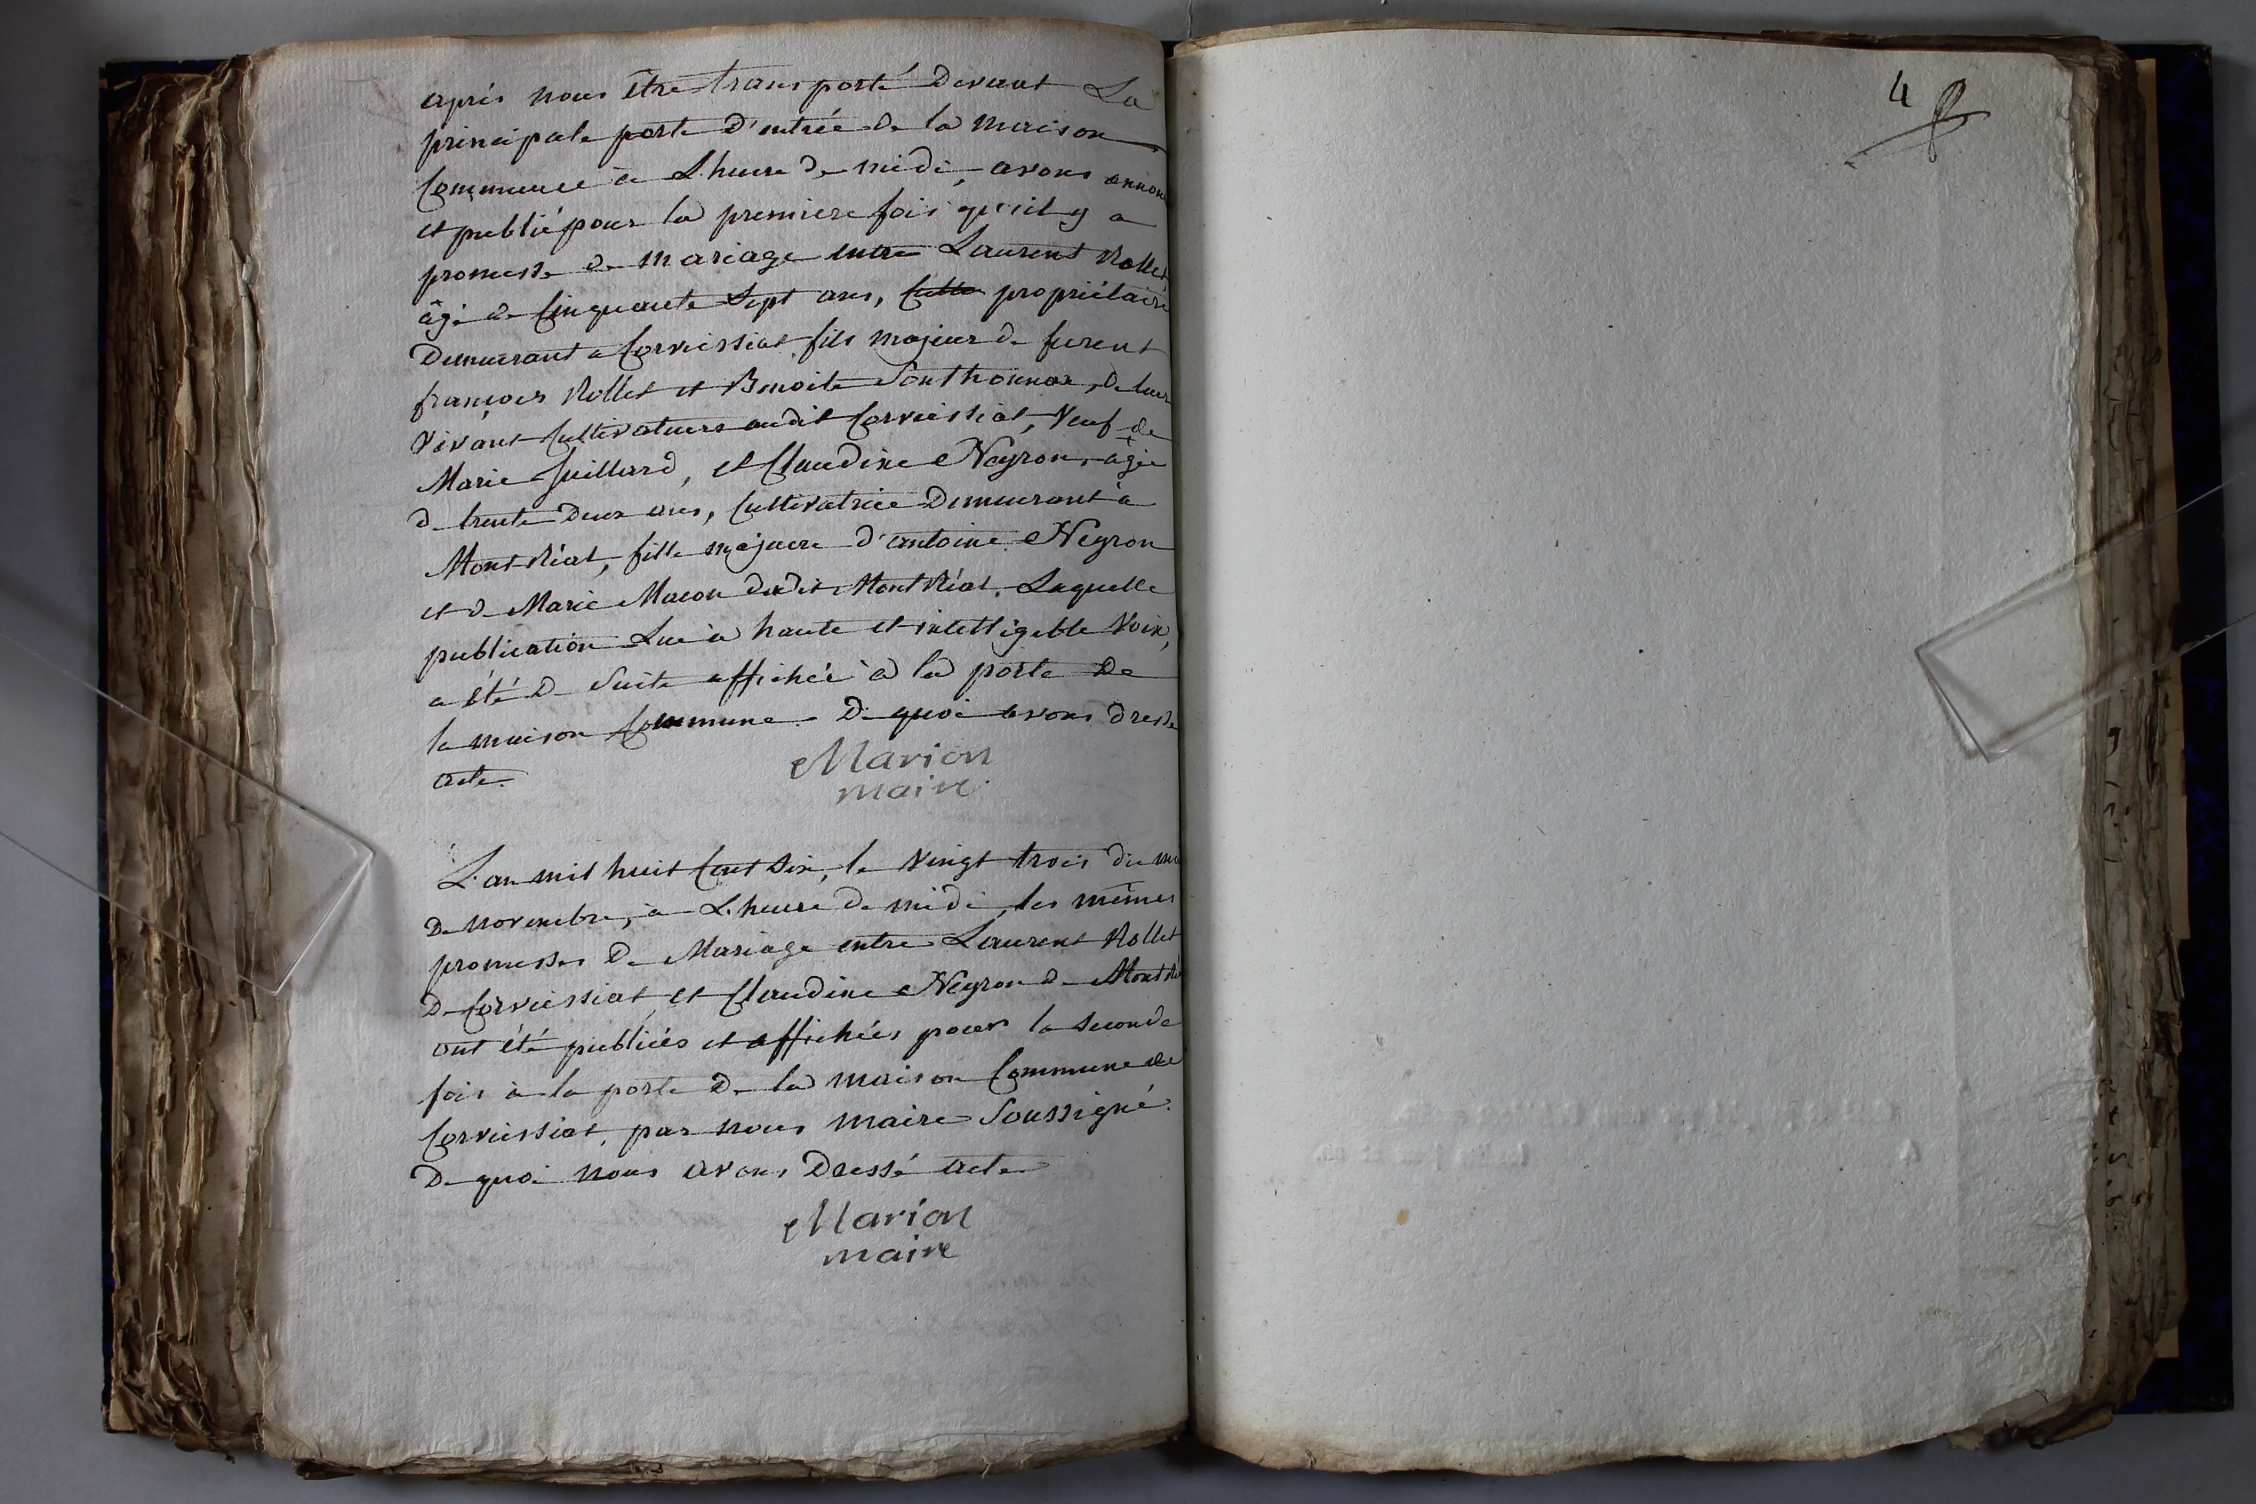 après nous être transporté devant La
principale porte d'entrée de la maison
Commune à L'heure de midi, avons annon
et publié pour la premiere fois qu'il y a
promesse de mariage entre Laurent Rollet,
âgé de Cinquante Sept ans, propriétaire
Demeurant a Corveissiat fils majeur de furent
françois Rollet et Benoite Sonthonnax, de leur
vivant Cultivateurs audit Corveissiat, veuf de
Marie Juillard, et Claudine Neyron, agée
de trente deux ans, Cultivatrice Demeurant à
Montréal, fille majeure d'antoine Neyron
et de Marie Macon dudit Montréal. Laquelle
publication Lue à haute et intelligible Voix,
a été de Suite affichée à la porte de
la maison Commune. De quoi avons dressé
acte.
Marion
maire
L'an mil huit Cent dix, le vingt trois du
de novembre, à L'heure de midi, les mêmes
promesses de Mariage entre Laurent Rollet
de Corveissiat et Claudine Neyron de Montré
ont été publiées et affichées pour la seconde
fois à la porte de la maison Commune de
Corveissiat, par nous maire Soussigné.
De quoi nous avons Dressé acte
Marion
maire
4